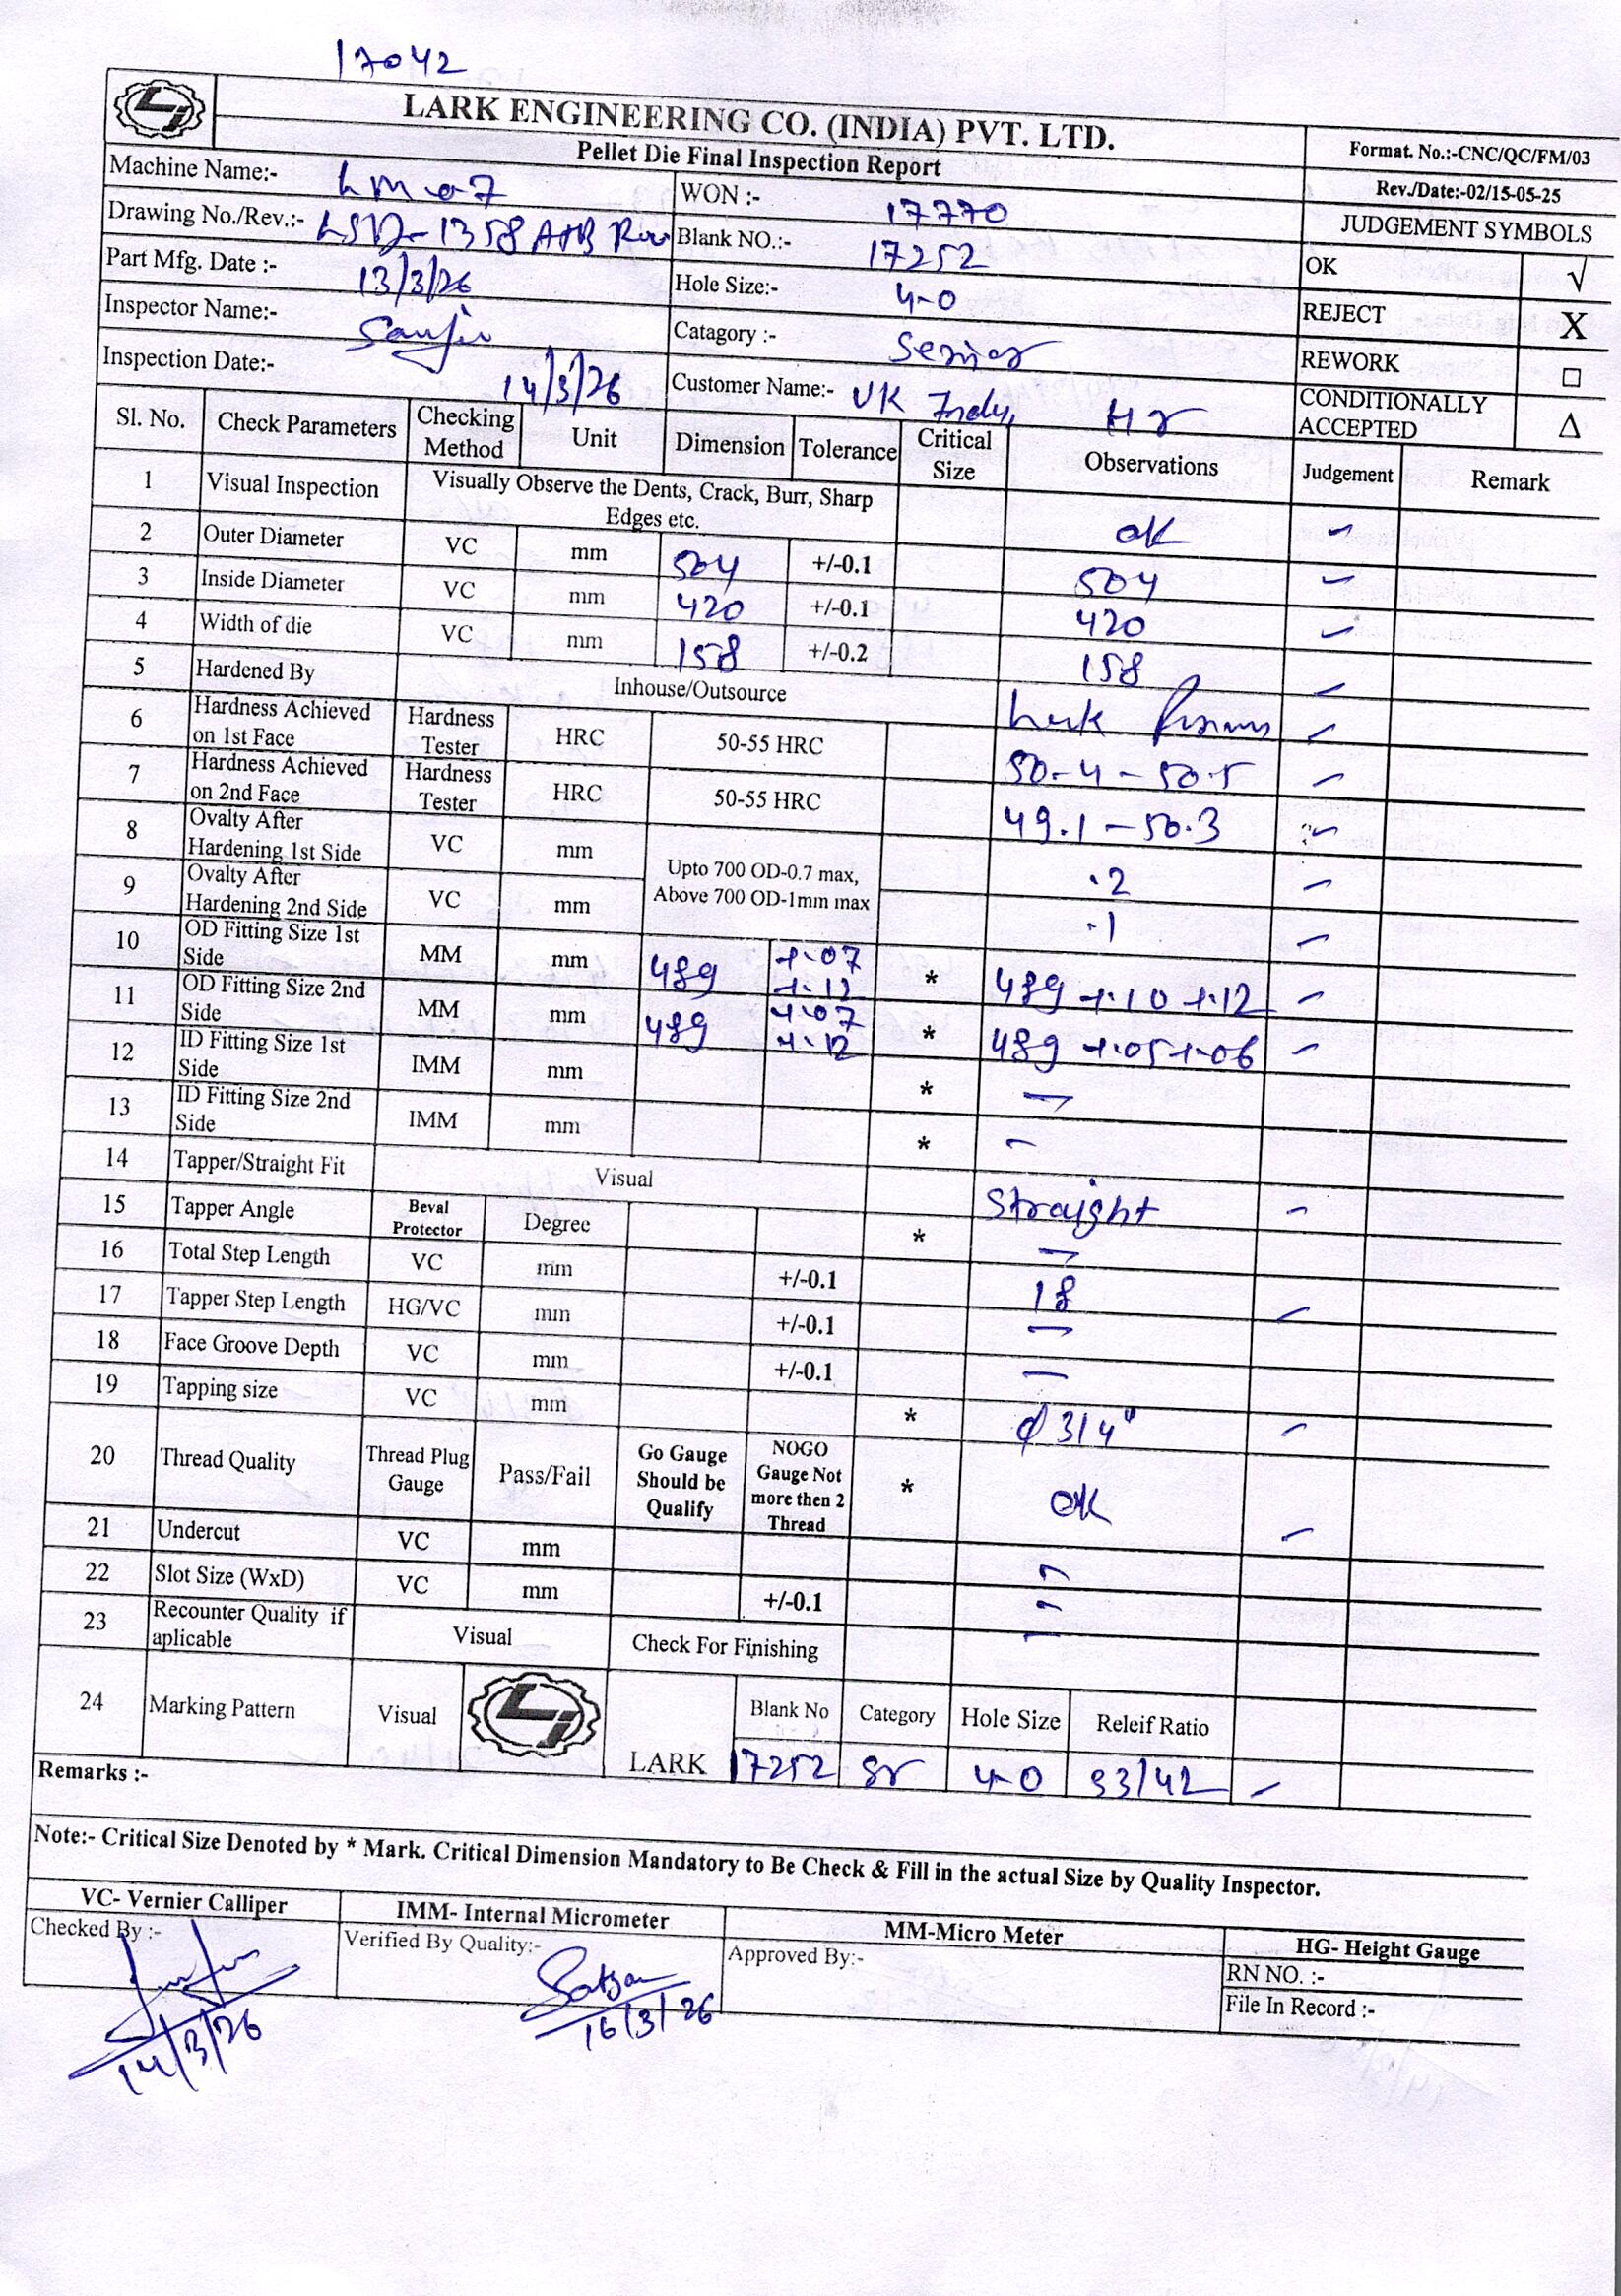 17042
LARK ENGINEERING CO. (INDIA) PVT. LTD.
Pellet Die Final Inspection Report
Format. No.:-CNC/QC/FM/03
Rev./Date:-02/15-05-25
Machine Name:- LM 07 WON :- 17770 JUDGEMENT SYMBOLS
Drawing No./Rev.:- LSD-1358 A+B Blank NO.:- 17252 OK √
Part Mfg. Date :- 13/3/26 Hole Size:- 4-0 REJECT X
Inspector Name:- Catagory :- Senior REWORK □
Inspection Date:- 14/3/26 Customer Name:- UK Hr CONDITIONALLY ACCEPTED Δ
Sl. No. Check Parameters Checking Method Unit Dimension Tolerance Critical Size Observations Judgement Remark
1 Visual Inspection Visually Observe the Dents, Crack, Burr, Sharp Edges etc. OK
2 Outer Diameter VC mm 504 +/-0.1 504
3 Inside Diameter VC mm 420 +/-0.1 420
4 Width of die VC mm 158 +/-0.2 158
5 Hardened By Inhouse/Outsource
6 Hardness Achieved on 1st Face Hardness Tester HRC 50-55 HRC 50-4 - 50.5
7 Hardness Achieved on 2nd Face Hardness Tester HRC 50-55 HRC 49.1 - 50.3
8 Ovalty After Hardening 1st Side VC mm Upto 700 OD-0.7 max, Above 700 OD-1mm max .2
9 Ovalty After Hardening 2nd Side VC mm .1
10 OD Fitting Size 1st Side MM mm 489 +.07 +.12 * 489 +.10 +.12
11 OD Fitting Size 2nd Side MM mm 489 +.07 +.12 * 489 +.05 +.06
12 ID Fitting Size 1st Side IMM mm * -
13 ID Fitting Size 2nd Side IMM mm * -
14 Tapper/Straight Fit Visual Straight
15 Tapper Angle Beval Protector Degree * -
16 Total Step Length VC mm +/-0.1 18
17 Tapper Step Length HG/VC mm +/-0.1 -
18 Face Groove Depth VC mm +/-0.1 -
19 Tapping size VC mm * φ 3/4"
20 Thread Quality Thread Plug Gauge Pass/Fail Go Gauge Should be Qualify NOGO Gauge Not more then 2 Thread * OK
21 Undercut VC mm -
22 Slot Size (WxD) VC mm +/-0.1 -
23 Recounter Quality if aplicable Visual Check For Finishing -
24 Marking Pattern Visual LARK Blank No Category Hole Size Releif Ratio
17252 Sr 4-0 33/42
Remarks :-
Note:- Critical Size Denoted by * Mark. Critical Dimension Mandatory to Be Check & Fill in the actual Size by Quality Inspector.
VC- Vernier Calliper IMM- Internal Micrometer MM-Micro Meter HG- Height Gauge
Checked By :- Verified By Quality:- Approved By:- RN NO. :-
File In Record :-
14/3/26 16/3/26